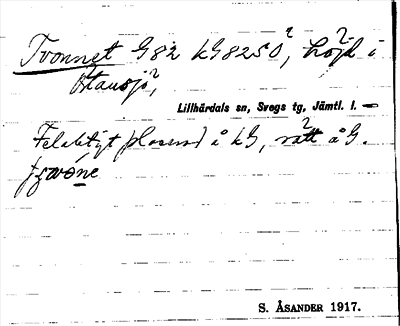 Tvonnet G 82 kG 8250, höjd i
Östansjö,
Lillhärdals sn, Svegs tg, Jämtl. l.
Felaktigt placerad å kG, rätt å G.
S. ÅSANDER 1917.